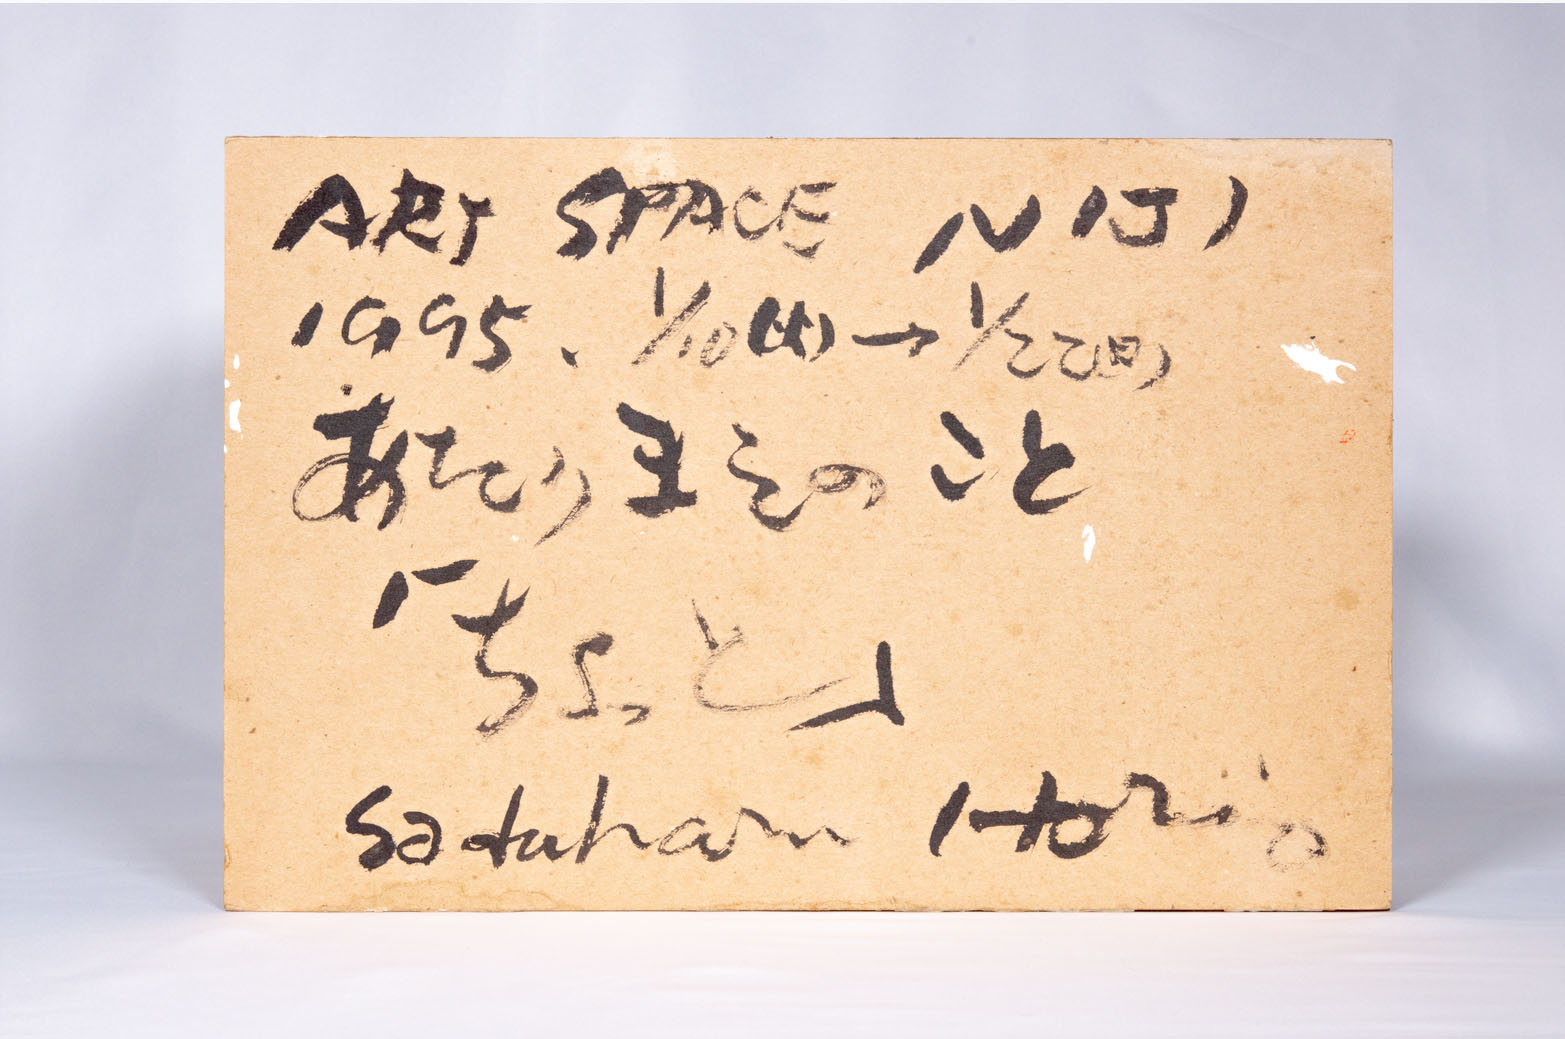 ART SPACE NIJI
1995. 1/10(火)→1/22(日)
あたりまえのこと
「ちょっと」
Sadaharu Horio